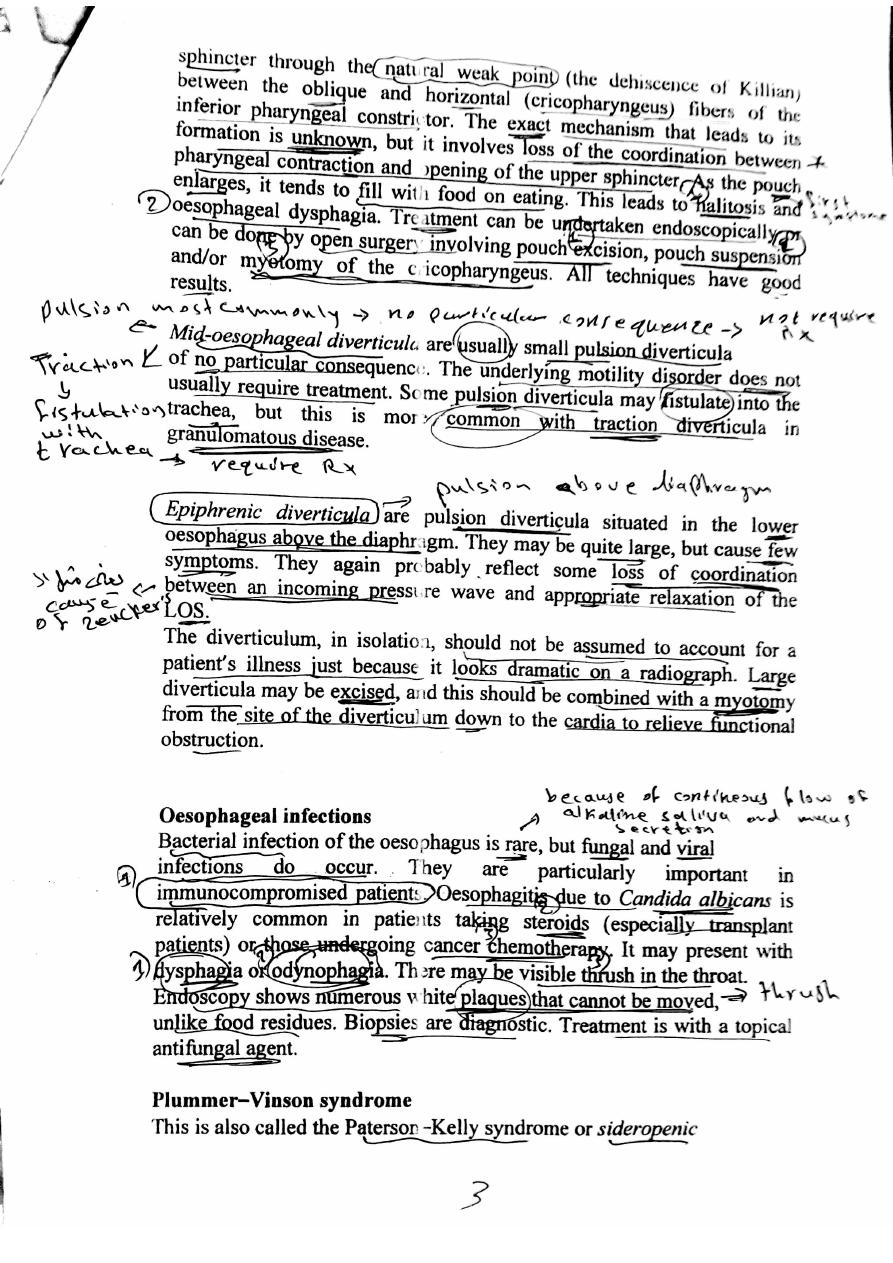 sphincter through the natural weak point (the dehiscence of Killian)
between the oblique and horizontal (cricopharyngeus) fibers of the
inferior pharyngeal constrictor. The exact mechanism that leads to its
formation is unknown, but it involves loss of the coordination between
pharyngeal contraction and opening of the upper sphincter. As the pouch
enlarges, it tends to fill with food on eating. This leads to halitosis and
first
2 oesophageal dysphagia. Treatment can be undertaken endoscopically or
can be done by open surgery involving pouch excision, pouch suspension
and/or myotomy of the cricopharyngeus. All techniques have good
results.
pulsion most commonly → no particular consequence → not require
Rx
Mid-oesophageal diverticula are usually small pulsion diverticula
Traction
of no particular consequence. The underlying motility disorder does not
usually require treatment. Some pulsion diverticula may fistulate into the
fistulation
trachea, but this is more common with traction diverticula in
with
trachea
granulomatous disease.
→ require Rx
pulsion above diaphragm
Epiphrenic diverticula are pulsion diverticula situated in the lower
oesophagus above the diaphragm. They may be quite large, but cause few
symptoms. They again probably reflect some loss of coordination
between an incoming pressure wave and appropriate relaxation of the
cause
of
LOS.
The diverticulum, in isolation, should not be assumed to account for a
patient's illness just because it looks dramatic on a radiograph. Large
diverticula may be excised, and this should be combined with a myotomy
from the site of the diverticulum down to the cardia to relieve functional
obstruction.
because of contineous flow of
alkaline saliva and mucus
secretion
Oesophageal infections
Bacterial infection of the oesophagus is rare, but fungal and viral
infections do occur. They are particularly important in
1 immunocompromised patients. Oesophagitis due to Candida albicans is
relatively common in patients taking steroids (especially transplant
patients) or those undergoing cancer chemotherapy. It may present with
1) dysphagia or odynophagia. There may be visible thrush in the throat.
Endoscopy shows numerous white plaques that cannot be moved, → thrush
unlike food residues. Biopsies are diagnostic. Treatment is with a topical
antifungal agent.
Plummer–Vinson syndrome
This is also called the Paterson-Kelly syndrome or sideropenic
3